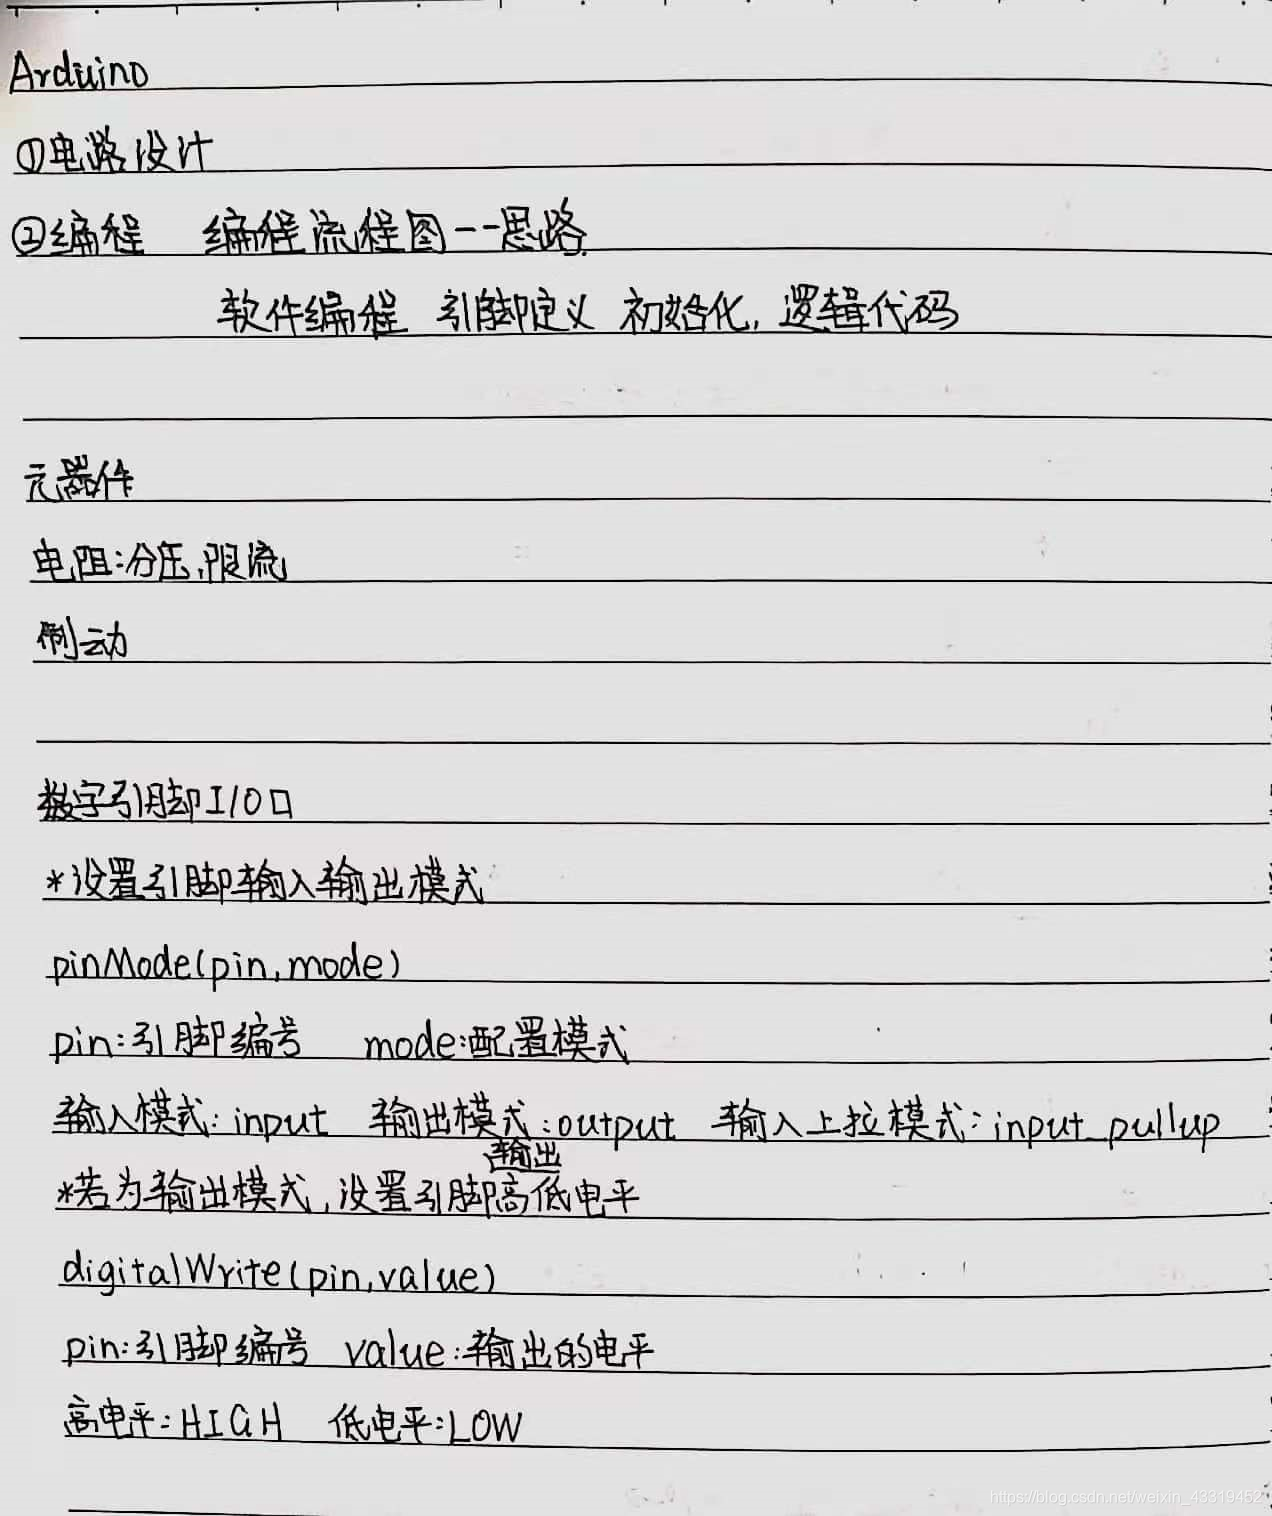 Arduino
①电路设计
②编程 编程流程图--思路
软件编程 引脚定义 初始化, 逻辑代码
元器件
电阻:分压,限流
制动
数字引脚I/O口
*设置引脚输入输出模式
pinMode(pin,mode)
pin:引脚编号 mode:配置模式
输入模式:input 输出模式:output 输入上拉模式:input_pullup
输出
*若为输出模式,设置引脚高低电平
digitalWrite(pin,value)
pin:引脚编号 value:输出的电平
高电平:HIGH 低电平:LOW
https://blog.csdn.net/weixin_43319452